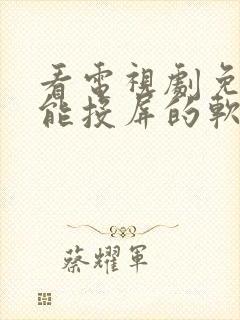 看電視劇免
能投屏的軟
蔡耀軍